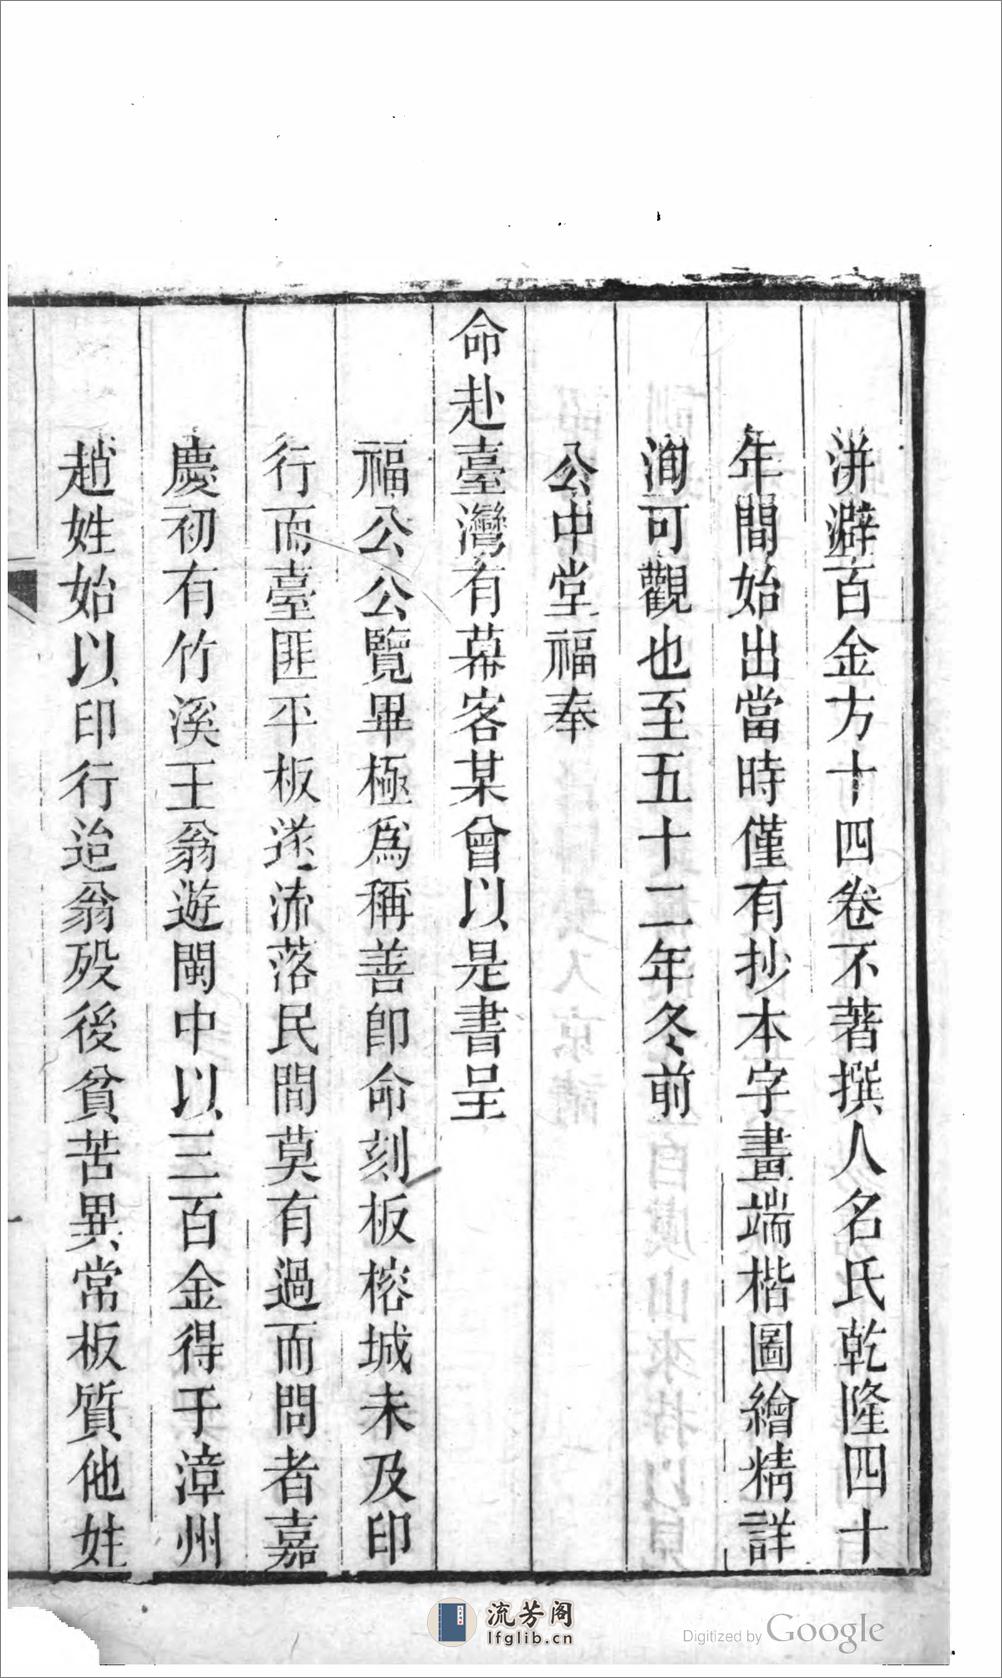 洴澼百金方十四卷不著撰人名氏乾隆四十
年間始出當時僅有抄本字畫端楷圖繪精詳
洵可觀也至五十二年冬前
公中堂福奉
命赴臺灣有幕客某曾以是書呈
福公公覽畢極爲稱善卽命刻板榕城未及印
行而臺匪平板遂流落民間莫有過而問者嘉
慶初有竹溪王翁遊閩中以三百金得于漳州
趙姓始以印行迨翁歿後貧苦異常板質他姓
流芳阁
lfglib.cn
Digitized by Google